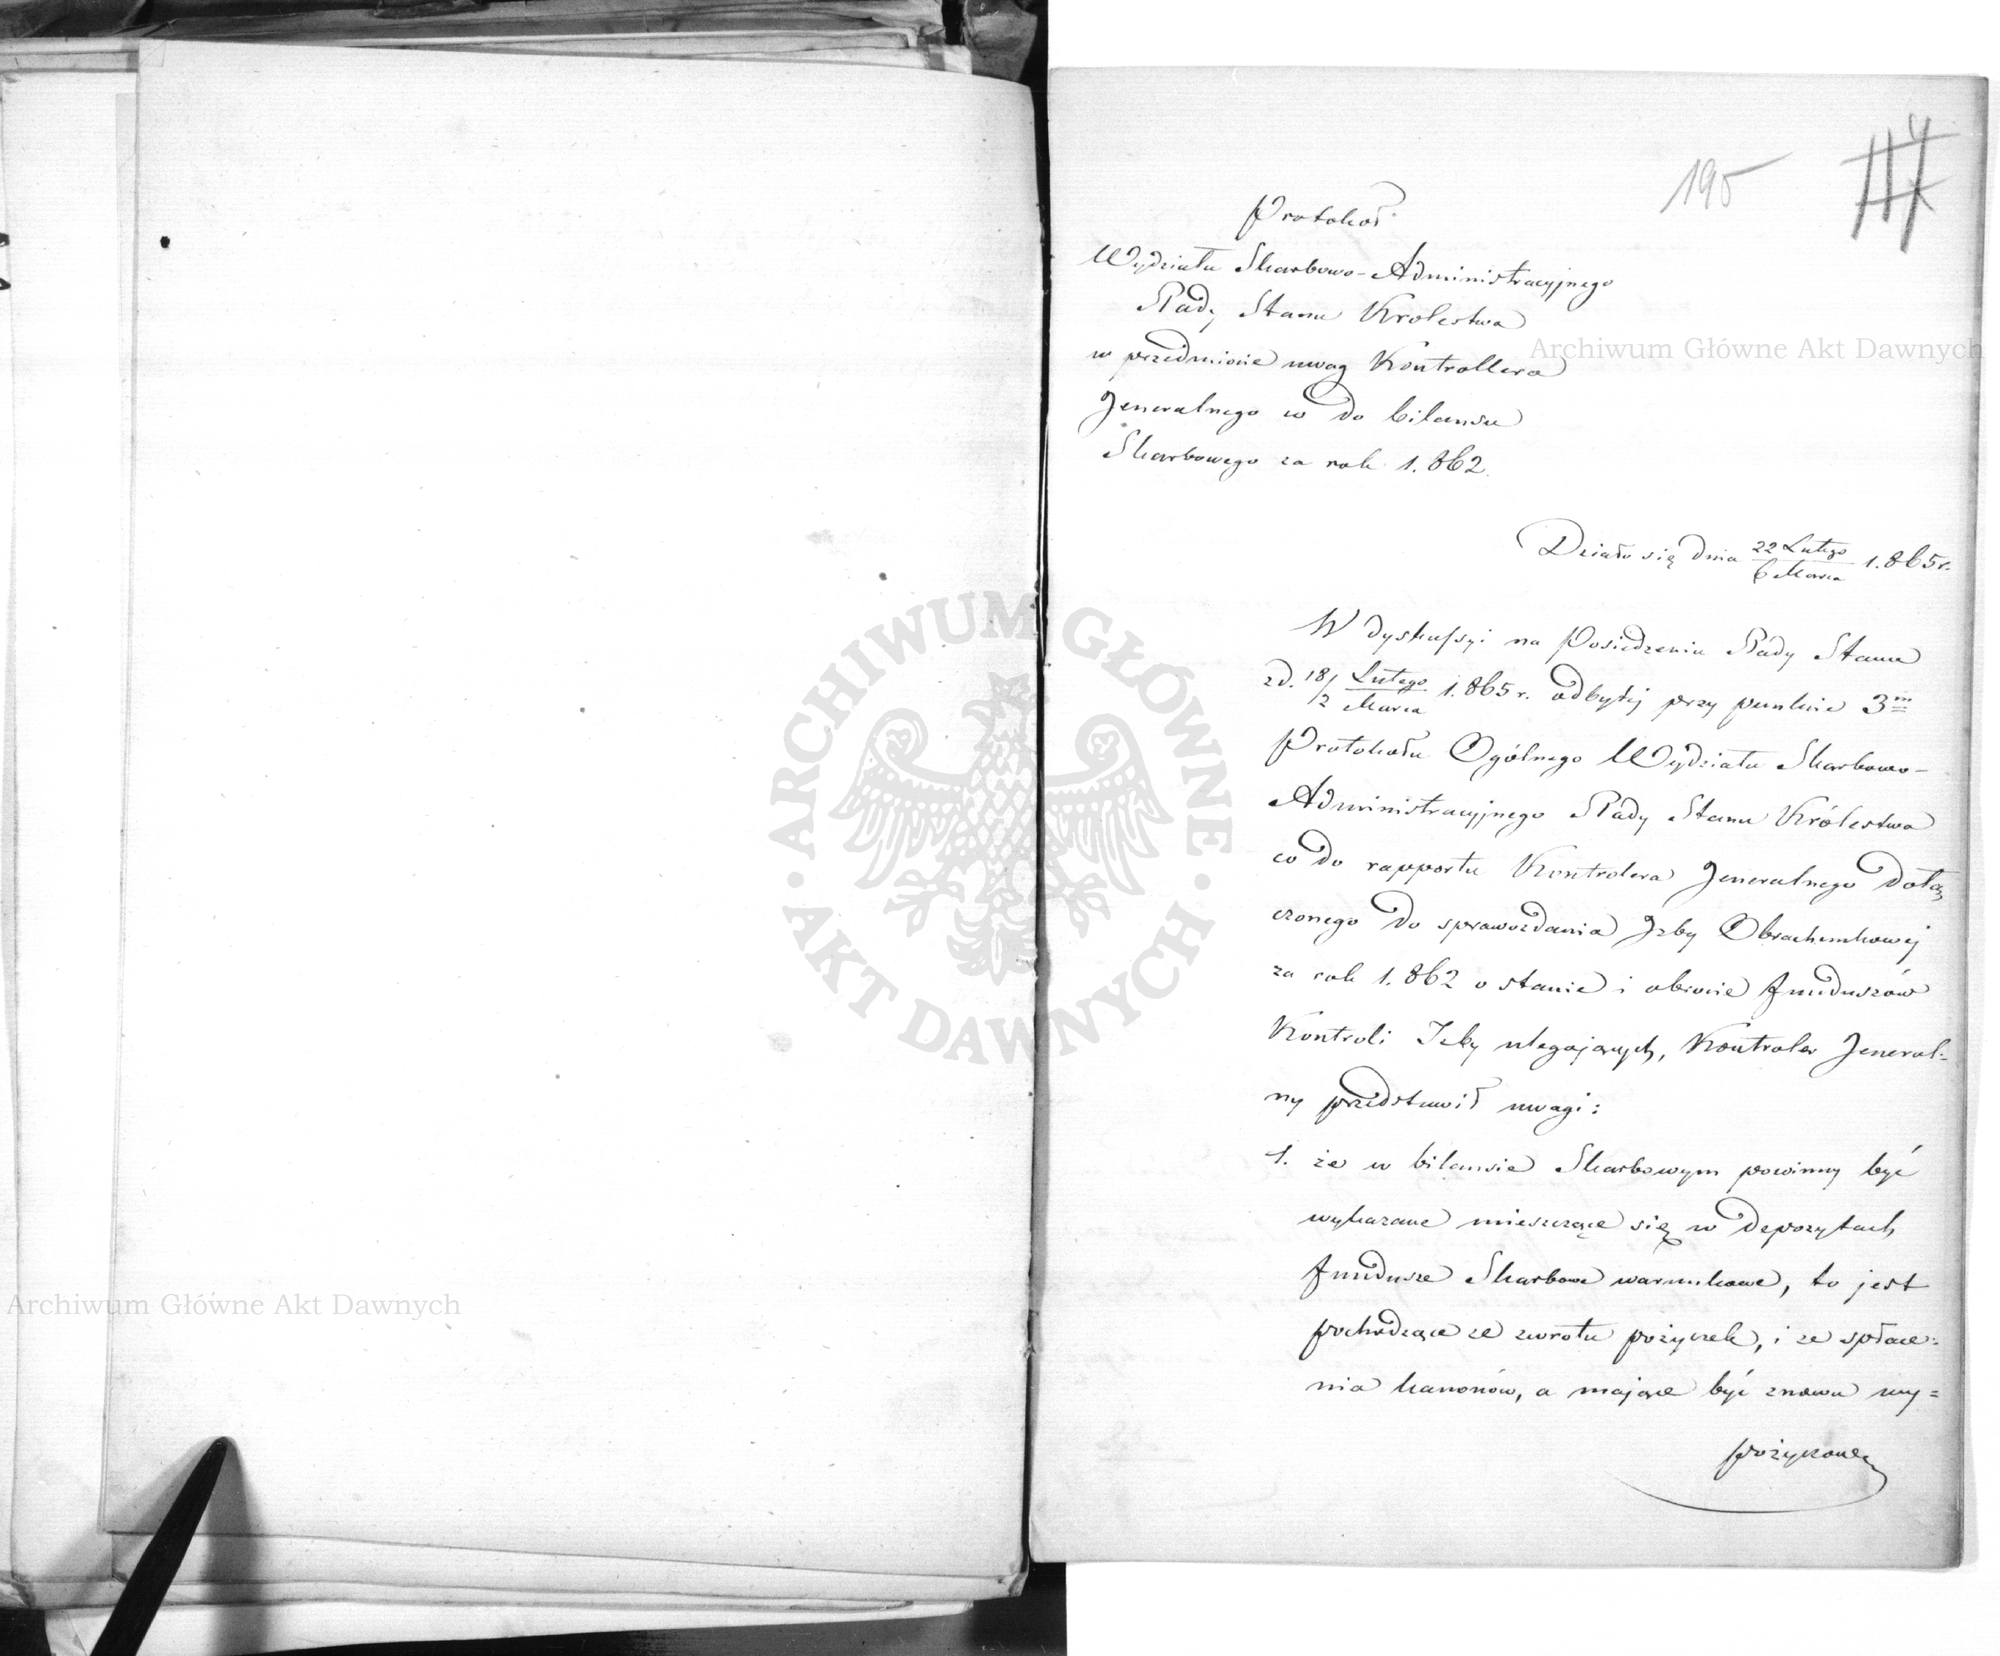 195
Protokoł
Wydziału Skarbowo-Administracyjnego
Rady Stanu Królestwa
w przedmiocie uwag Kontrollera
Jeneralnego co do bilansu
Skarbowego za rok 1.862.
Działo się dnia 22 Lutego / 6 Marca 1.865 r.
W dyskussyi na Posiedzeniu Rady Stanu
z d. 18/2 Lutego / Marca 1.865 r. odbytej przy punkcie 3m
Protokołu Ogólnego Wydziału Skarbowo-
Administracyjnego Rady Stanu Królestwa
co do rapportu Kontrolera Jeneralnego dołą-
czonego do sprawozdania Izby Obrachunkowej
za rok 1.862 o stanie i obrocie funduszów
Kontroli Izby ulegających, Kontroler Jeneral-
ny przedstawił uwagi:
1. że w bilansie Skarbowym powinny być
wykazane mieszczące się w depozytach
fundusze Skarbowe warunkowe, to jest
pochodzące ze zwrotu pożyczek, i ze spłace-
nia kanonów, a mające być znowu wy=
pożyczone
Archiwum Główne Akt Dawnych
Archiwum Główne Akt Dawnych
ARCHIWUM GŁÓWNE · AKT DAWNYCH ·